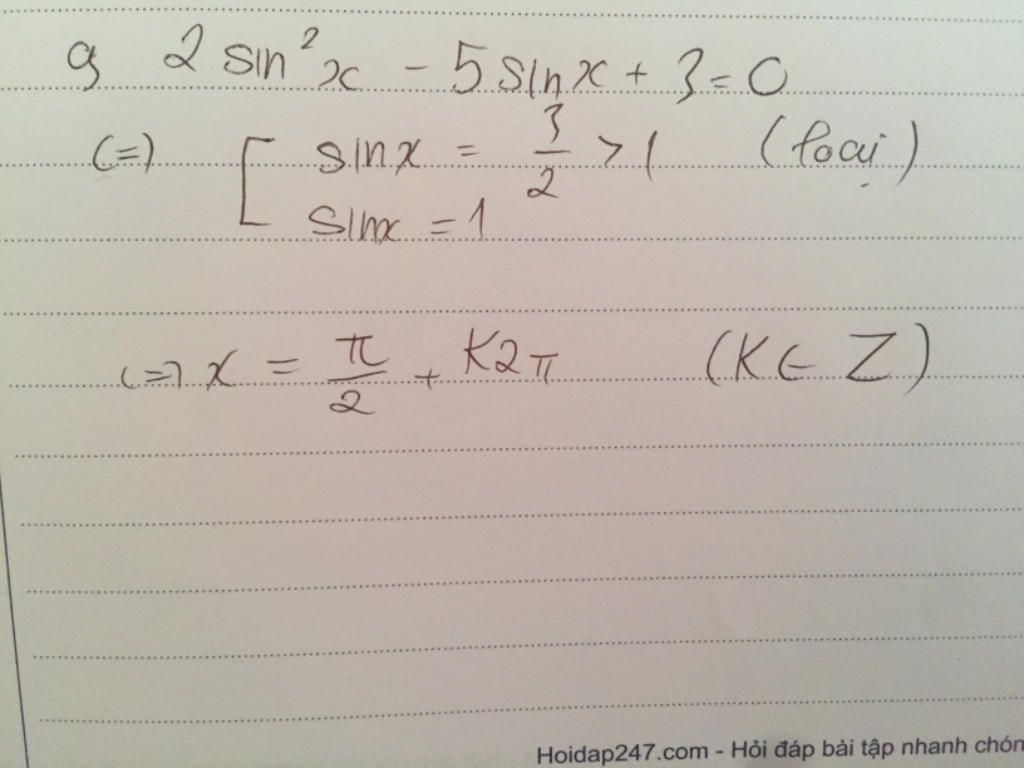 g 2 sin²x - 5 sinx + 3 = 0
(=) [ sinx = 3/2 > 1 (loại)
sinx = 1
(=) x = π/2 + K2π (K ∈ Z)
Hoidap247.com - Hỏi đáp bài tập nhanh chón